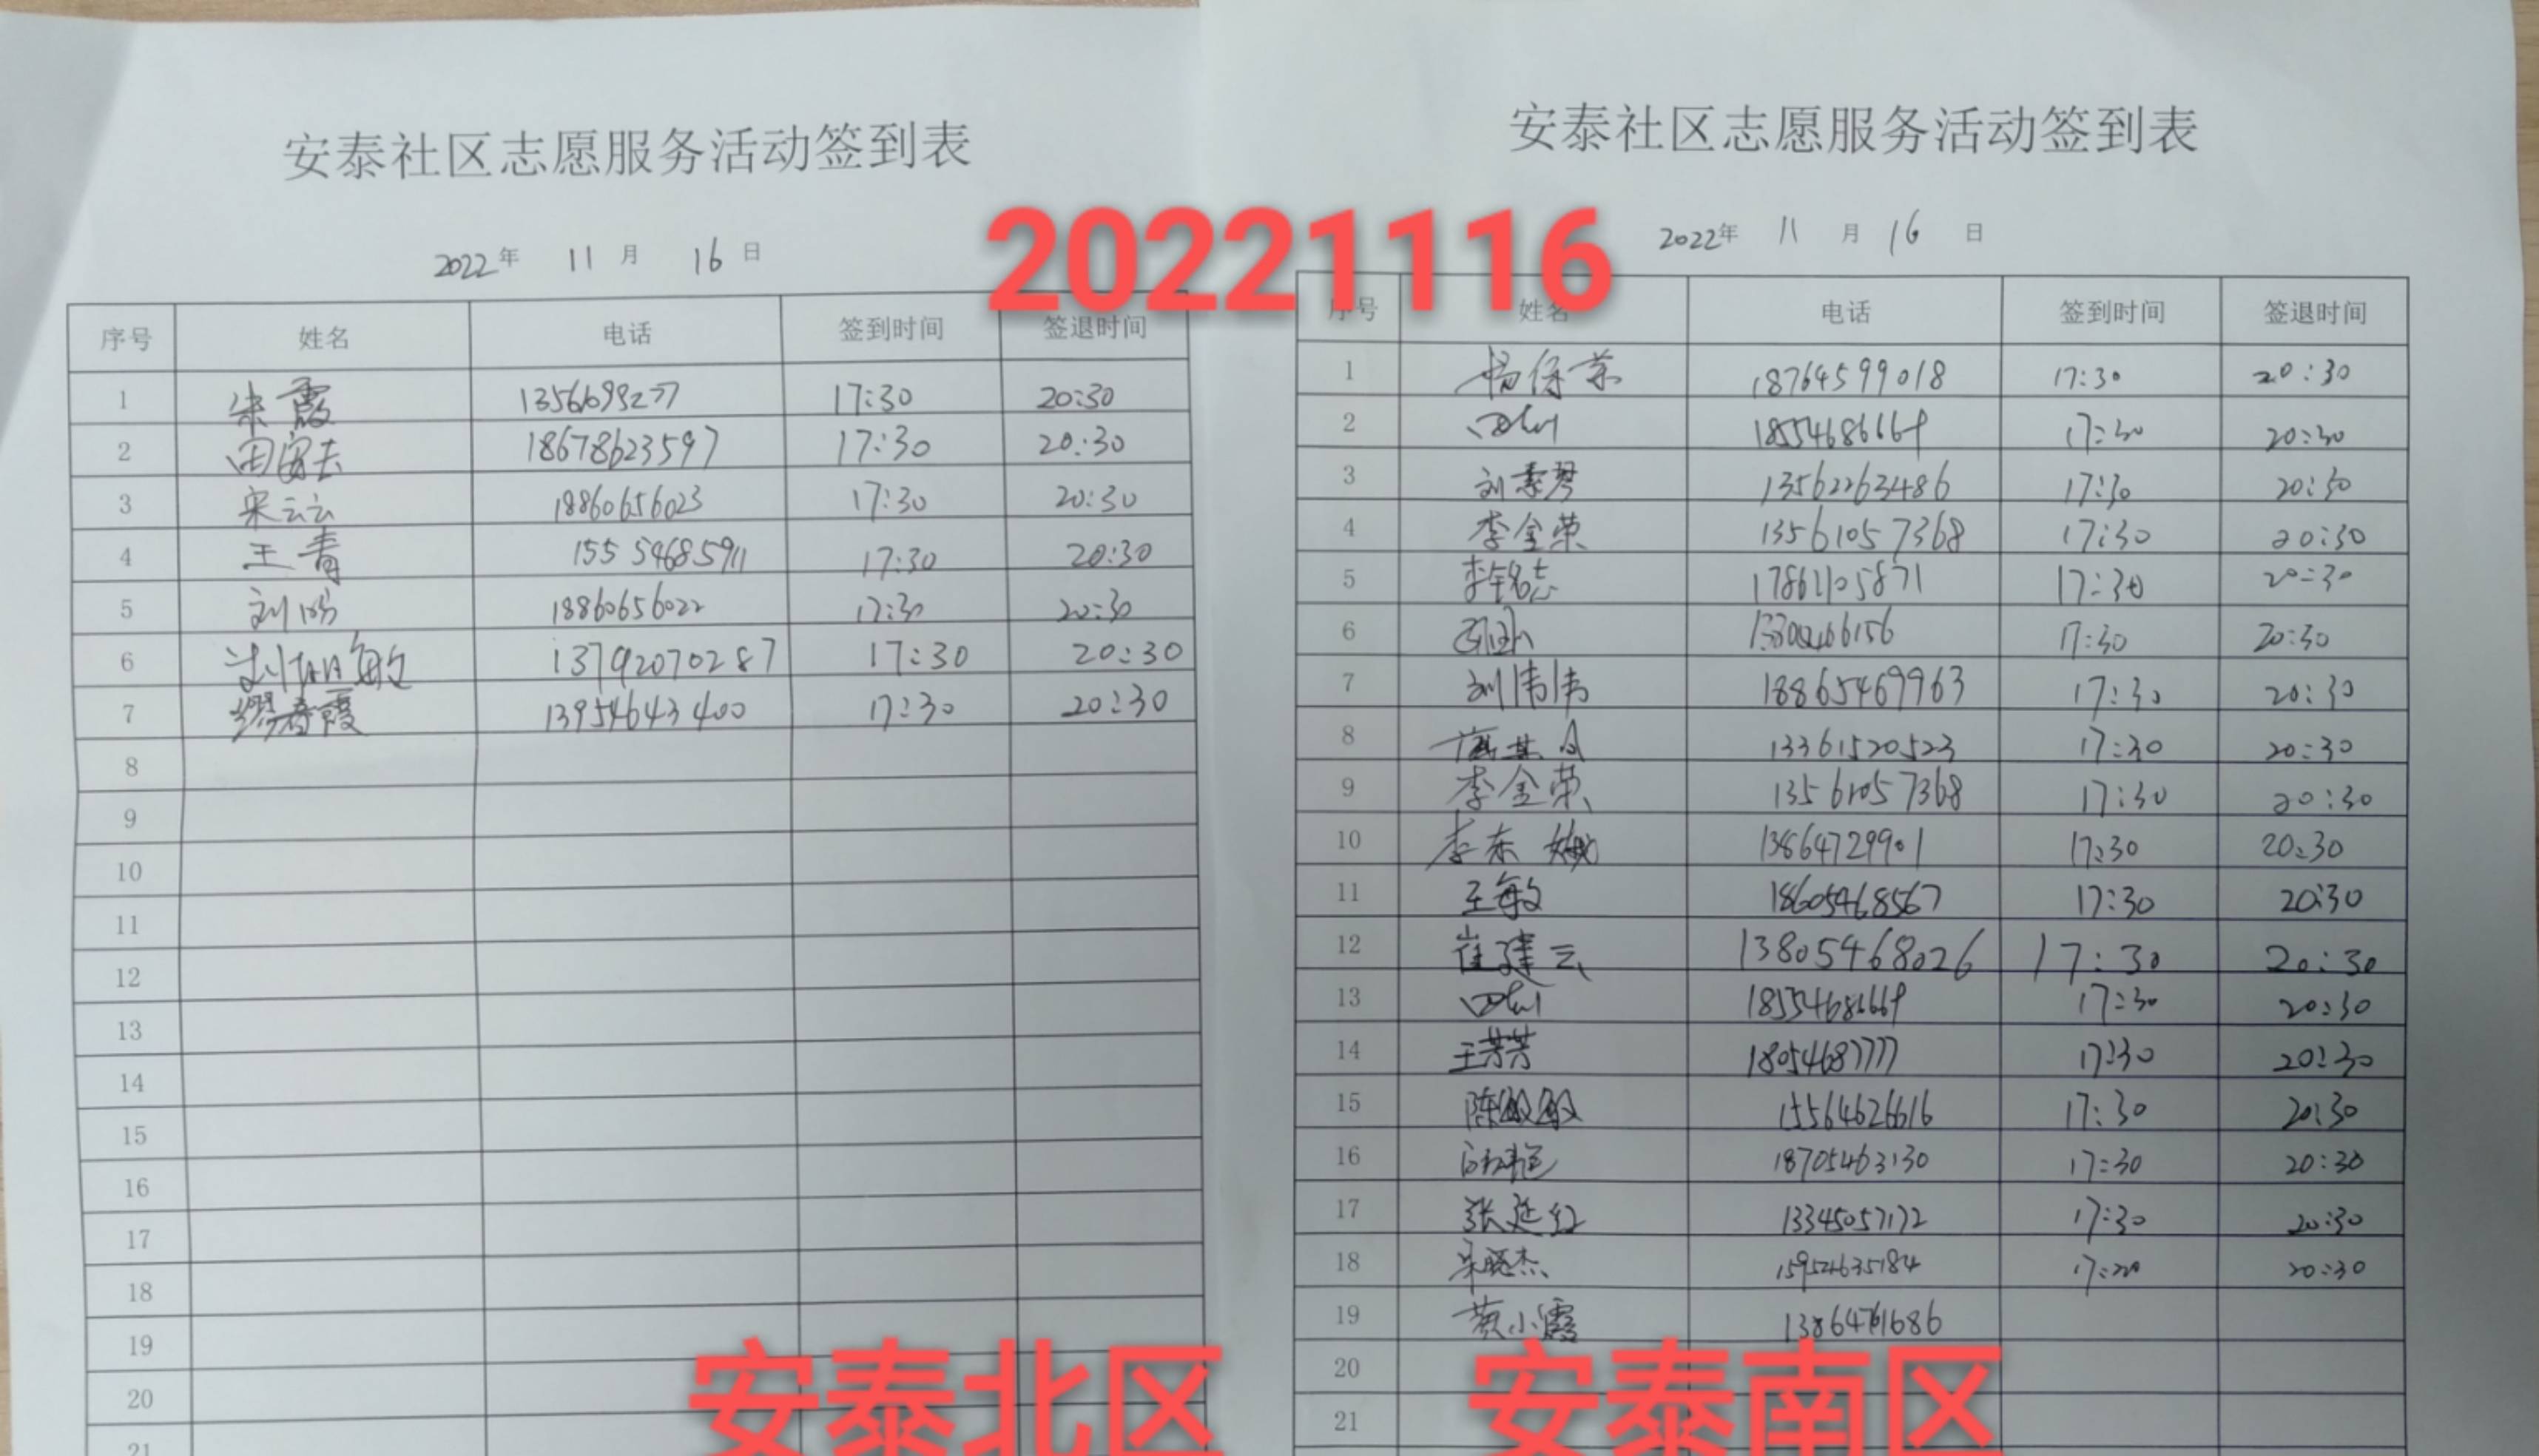 安泰社区志愿服务活动签到表
2022年 11 月 16 日
序号 姓名 电话 签到时间 签退时间
1 朱霞 17:30 20:30
2 18678623597 17:30 20:30
3 宋云云 18860656023 17:30 20:30
4 王青 155 54685911 17:30 20:30
5 刘 18860656022 17:30 20:30
6 13792070287 17:30 20:30
7 缪春霞 13954643400 17:30 20:30
8
9
10
11
12
13
14
15
16
17
18
19
20
21
安泰北区
20221116
安泰社区志愿服务活动签到表
2022年 11 月 16 日
序号 姓名 电话 签到时间 签退时间
1 杨保荣 18764599018 17:30 20:30
2 17:30 20:30
3 刘素琴 13562263486 17:30 20:30
4 李金荣 13561057368 17:30 20:30
5 李铭志 17861105871 17:30 20:30
6 17:30 20:30
7 刘伟伟 18865469963 17:30 20:30
8 13361520523 17:30 20:30
9 李金荣 13561057368 17:30 20:30
10 李东娥 13864729901 17:30 20:30
11 王敏 18605468567 17:30 20:30
12 崔建云 13805468026 17:30 20:30
13 17:30 20:30
14 王芳芳 18054687777 17:30 20:30
15 陈敏敏 15564626616 17:30 20:30
16 18705463130 17:30 20:30
17 张延红 13345057172 17:30 20:30
18 宋晓杰 15954635184 20:30
19 黄小霞 13864761686
20
21
安泰南区